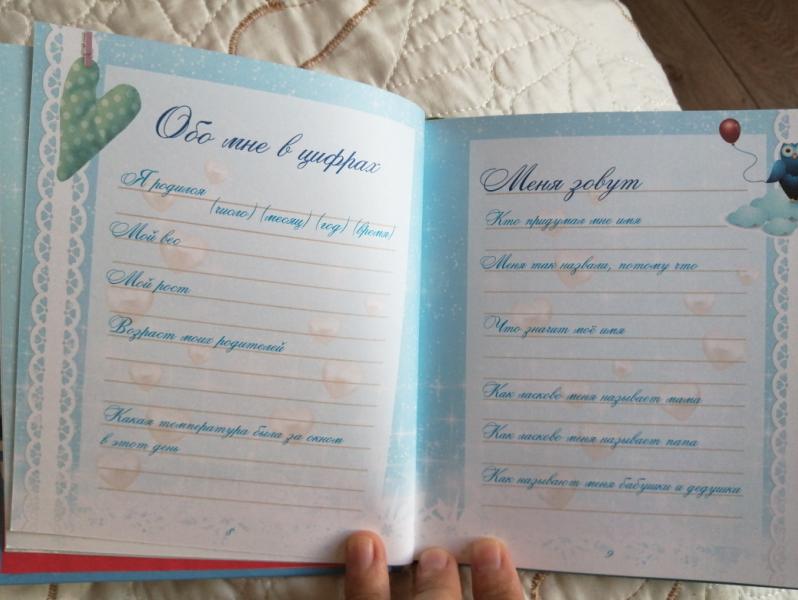 Обо мне в цифрах
Я родился
(число) (месяц) (год) (время)
Мой вес
Мой рост
Возраст моих родителей
Какая температура была за окном
в этот день
8
Меня зовут
Кто придумал мне имя
Меня так назвали, потому что
Что значит моё имя
Как ласково меня называет мама
Как ласково меня называет папа
Как называют меня бабушки и дедушки
9